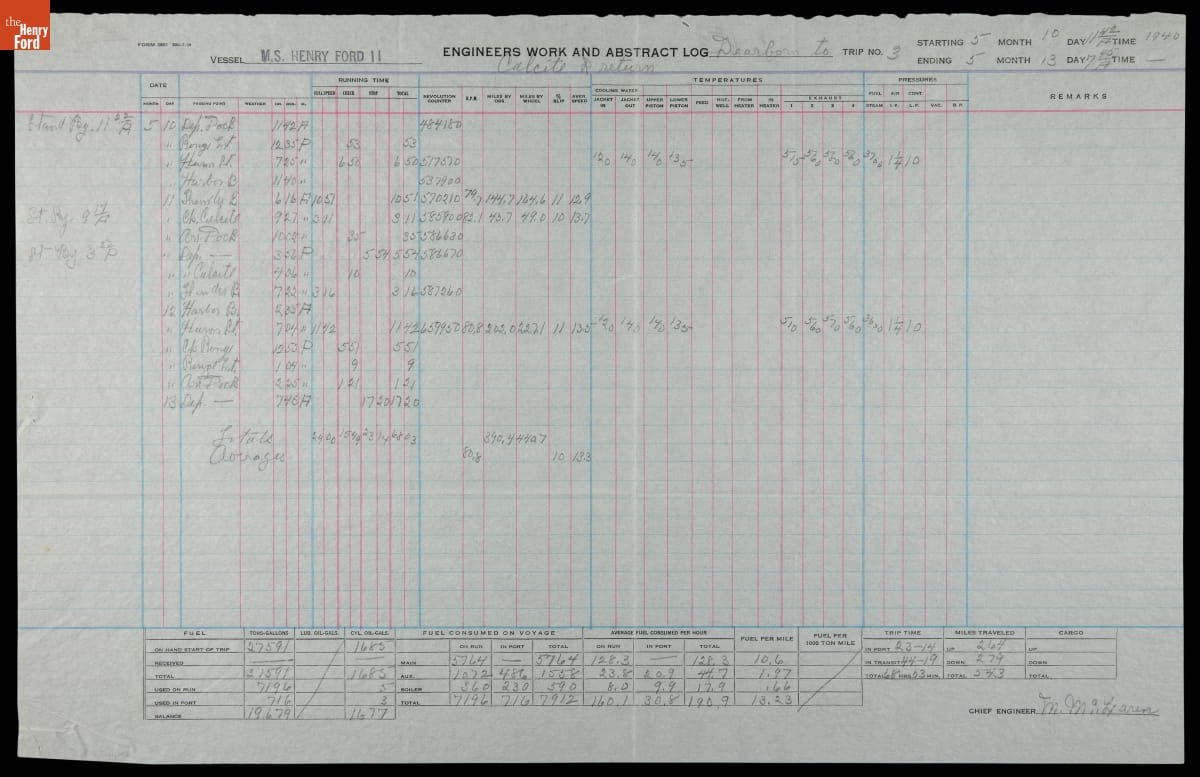 the
Henry
Ford
FORM 3851
VESSEL M.S. HENRY FORD II ENGINEERS WORK AND ABSTRACT LOG Dearborn to TRIP NO. 3 STARTING 5 MONTH 10 DAY 11 42/A TIME 1940
Calcite & return ENDING 5 MONTH 13 DAY 7 45/A TIME —
DATE RUNNING TIME TEMPERATURES PRESSURES
REMARKS
COOLING WATER
MONTH DAY PASSING POINT WEATHER HR. MIN. M. FULL SPEED CHECK STOP TOTAL REVOLUTION COUNTER R.P.M. MILES BY OBS. MILES BY WHEEL % SLIP AVER. SPEED JACKET IN JACKET OUT UPPER PISTON LOWER PISTON FEED HOT-WELL FROM HEATER IN HEATER EXHAUST 1 2 3 4 FUEL STEAM AIR I.P. CONT. L.P. VAC. B.P.
Stand By. 11 22/A 5 10 Dep. Dock 11 42 A 484180
" 12 35 P 53 53
" Huron Lt. 7 25 " 6 50 6 50 517570 120 140 140 135 515 560 560 1 1/4 10
" Harbor B 11 40 " 537900
11 6 16 A 10 51 10 51 570210 79.7 144.7 164.6 11 12.9
St By. 9 " Calcite 9 27 " 3 11 3 11 585900 82.1 43.7 49.0 10 13.7
" Arr. Dock 10 02 " 35 35 586630
St By 3 " Dep. — 3 56 P 5 54 5 54 586670
" " Calcite 4 06 " 10 10
" Thunder B 7 22 " 3 16 3 16 587260
12 Harbor B. 2 35 A
" Huron Lt. 7 04 " 11 42 11 42 659950 80.8 202.0 227.1 11 13.5 120 140 140 135 510 560 570 560 1 1/4 10
" 12 55 P 5 51 5 51
" 1 04 " 9 9
" Arr. Dock 2 25 " 1 21 1 21
13 Dep. — 7 45 A 17 20 17 20
Totals 29 00 15 49 23 14 68 03 390.4 440.7
Averages 80.8 10 13.3
FUEL TONS-GALLONS LUB. OIL-GALS. CYL. OIL-GALS. FUEL CONSUMED ON VOYAGE AVERAGE FUEL CONSUMED PER HOUR FUEL PER MILE FUEL PER 1000 TON MILE TRIP TIME MILES TRAVELED CARGO
ON RUN IN PORT TOTAL ON RUN IN PORT TOTAL
ON HAND START OF TRIP 27591 1685 IN PORT 23-14 UP 264 UP
RECEIVED — — MAIN 5764 — 5764 128.3 — 128.3 10.6 IN TRANSIT 44-19 DOWN 279 DOWN
TOTAL 27591 1685 AUX. 1072 486 1558 23.8 20.9 44.7 1.97 TOTAL 68 HRS. 03 MIN. TOTAL 543 TOTAL
USED ON RUN 7196 5 BOILER 360 230 590 8.0 9.9 17.9 .66
USED IN PORT 716 3 TOTAL 7196 716 7912 160.1 30.8 190.9 13.23
BALANCE 19679 1677
CHIEF ENGINEER M. McLaren